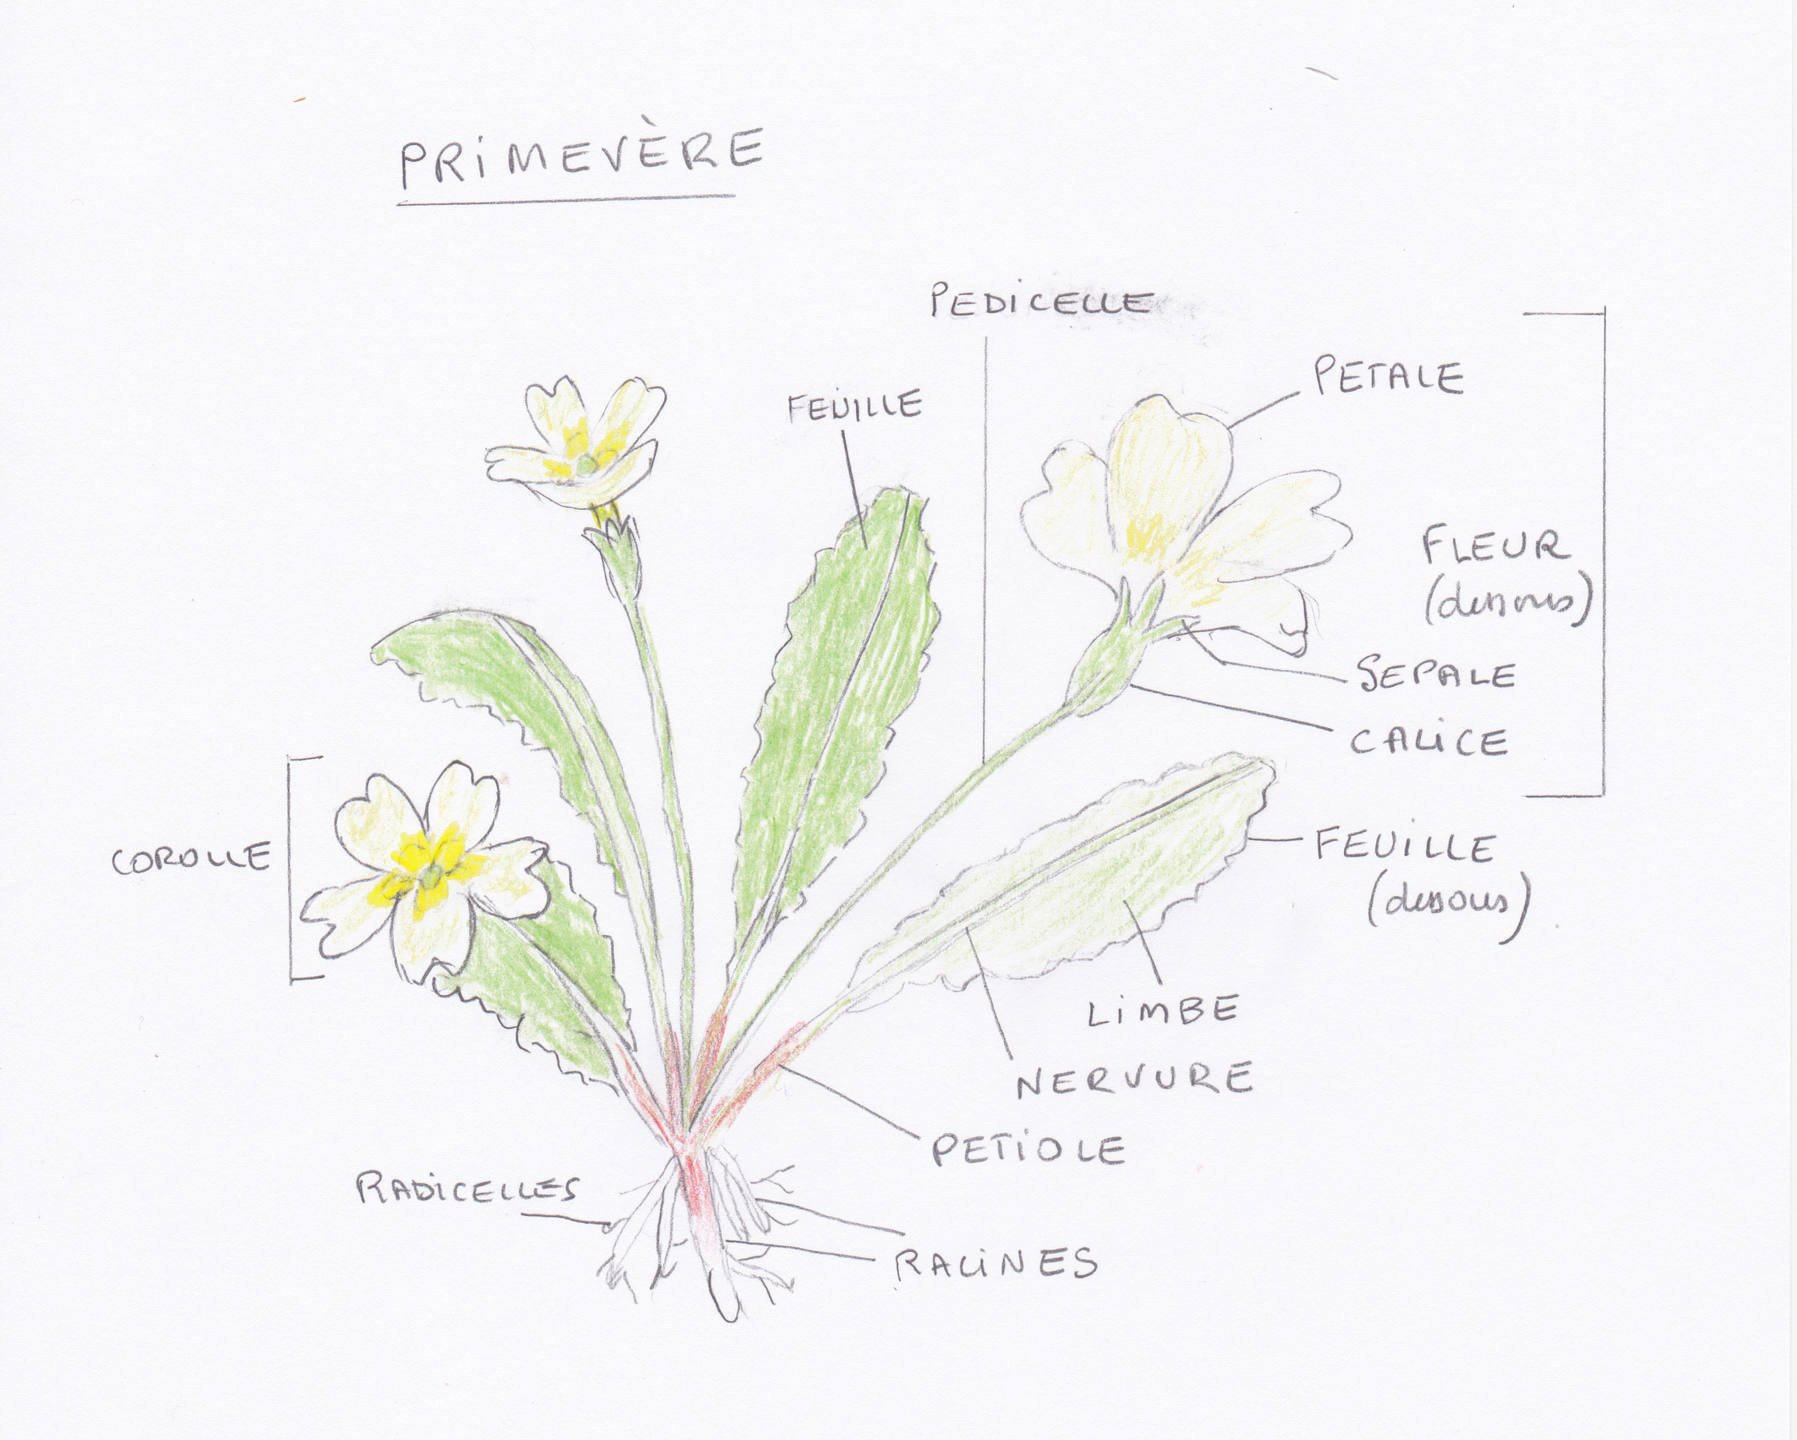 PRIMEVÈRE
PEDICELLE
PETALE
FEUILLE
FLEUR
(dessous)
SEPALE
CALICE
COROLLE
FEUILLE
(dessous)
LIMBE
NERVURE
PETIOLE
RADICELLES
RACINES